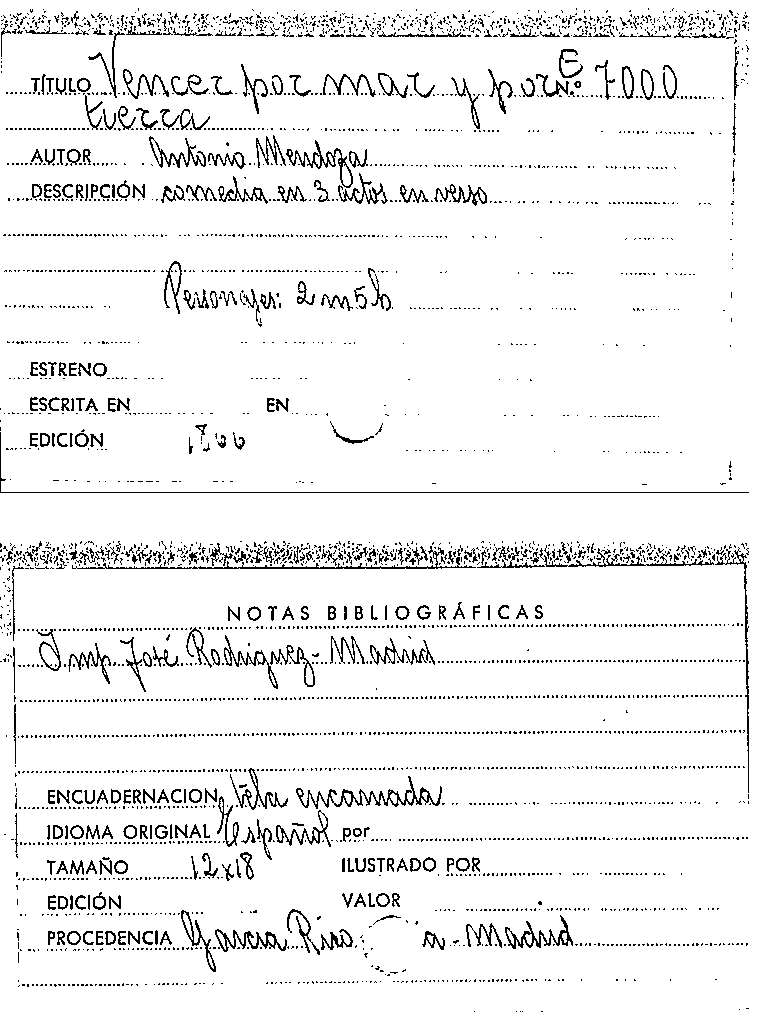 E
TÍTULO Vencer por mar y por N.º 7000
tierra
AUTOR Antonio Mendoza
DESCRIPCIÓN comedia en 3 actos en verso
Personajes: 2 m 5 h
ESTRENO
ESCRITA EN EN
EDICIÓN 1866
NOTAS BIBLIOGRÁFICAS
Imp José Rodriguez - Madrid
ENCUADERNACION tela encarnada
IDIOMA ORIGINAL Español por
TAMAÑO 12x18 ILUSTRADO POR
EDICIÓN VALOR
PROCEDENCIA García Rico a - Madrid